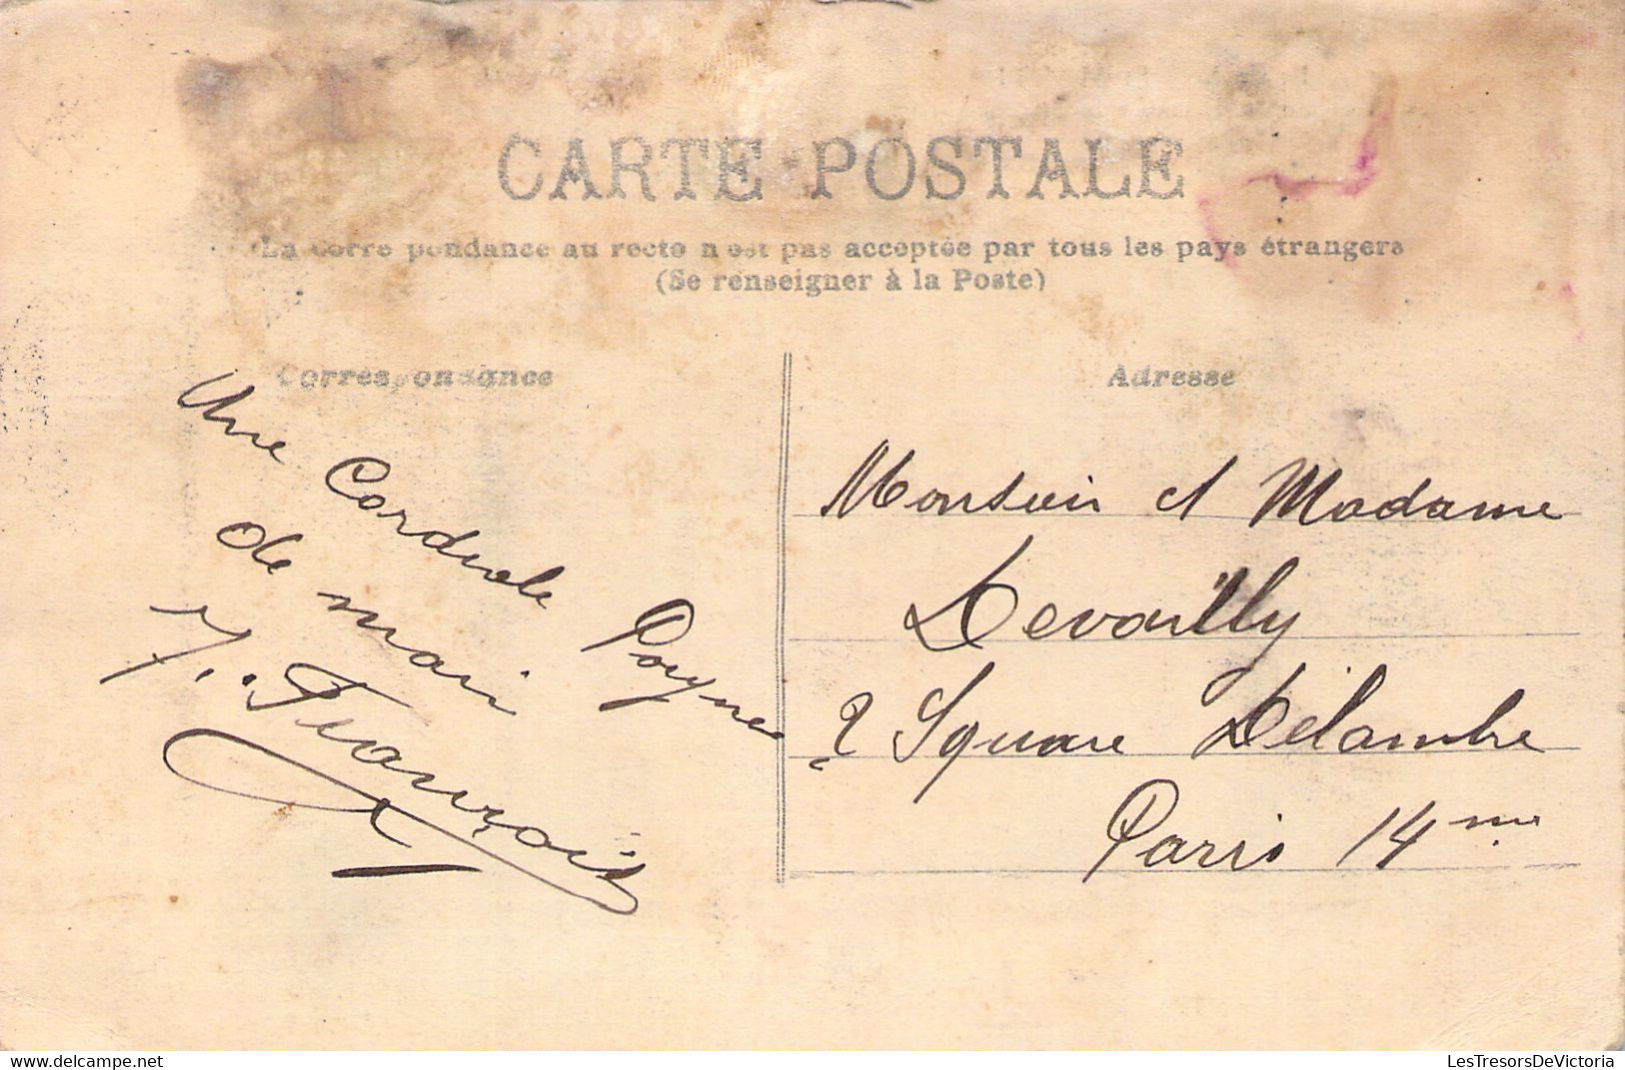 CARTE POSTALE
La Correspondance au recto n'est pas acceptée par tous les pays étrangers
(Se renseigner à la Poste)
Correspondance
Adresse
Une Cordiale Poignée
de main
François
Monsieur et Madame
Devailly
2 Square Délambre
Paris 14me
LesTresorsDeVictoria